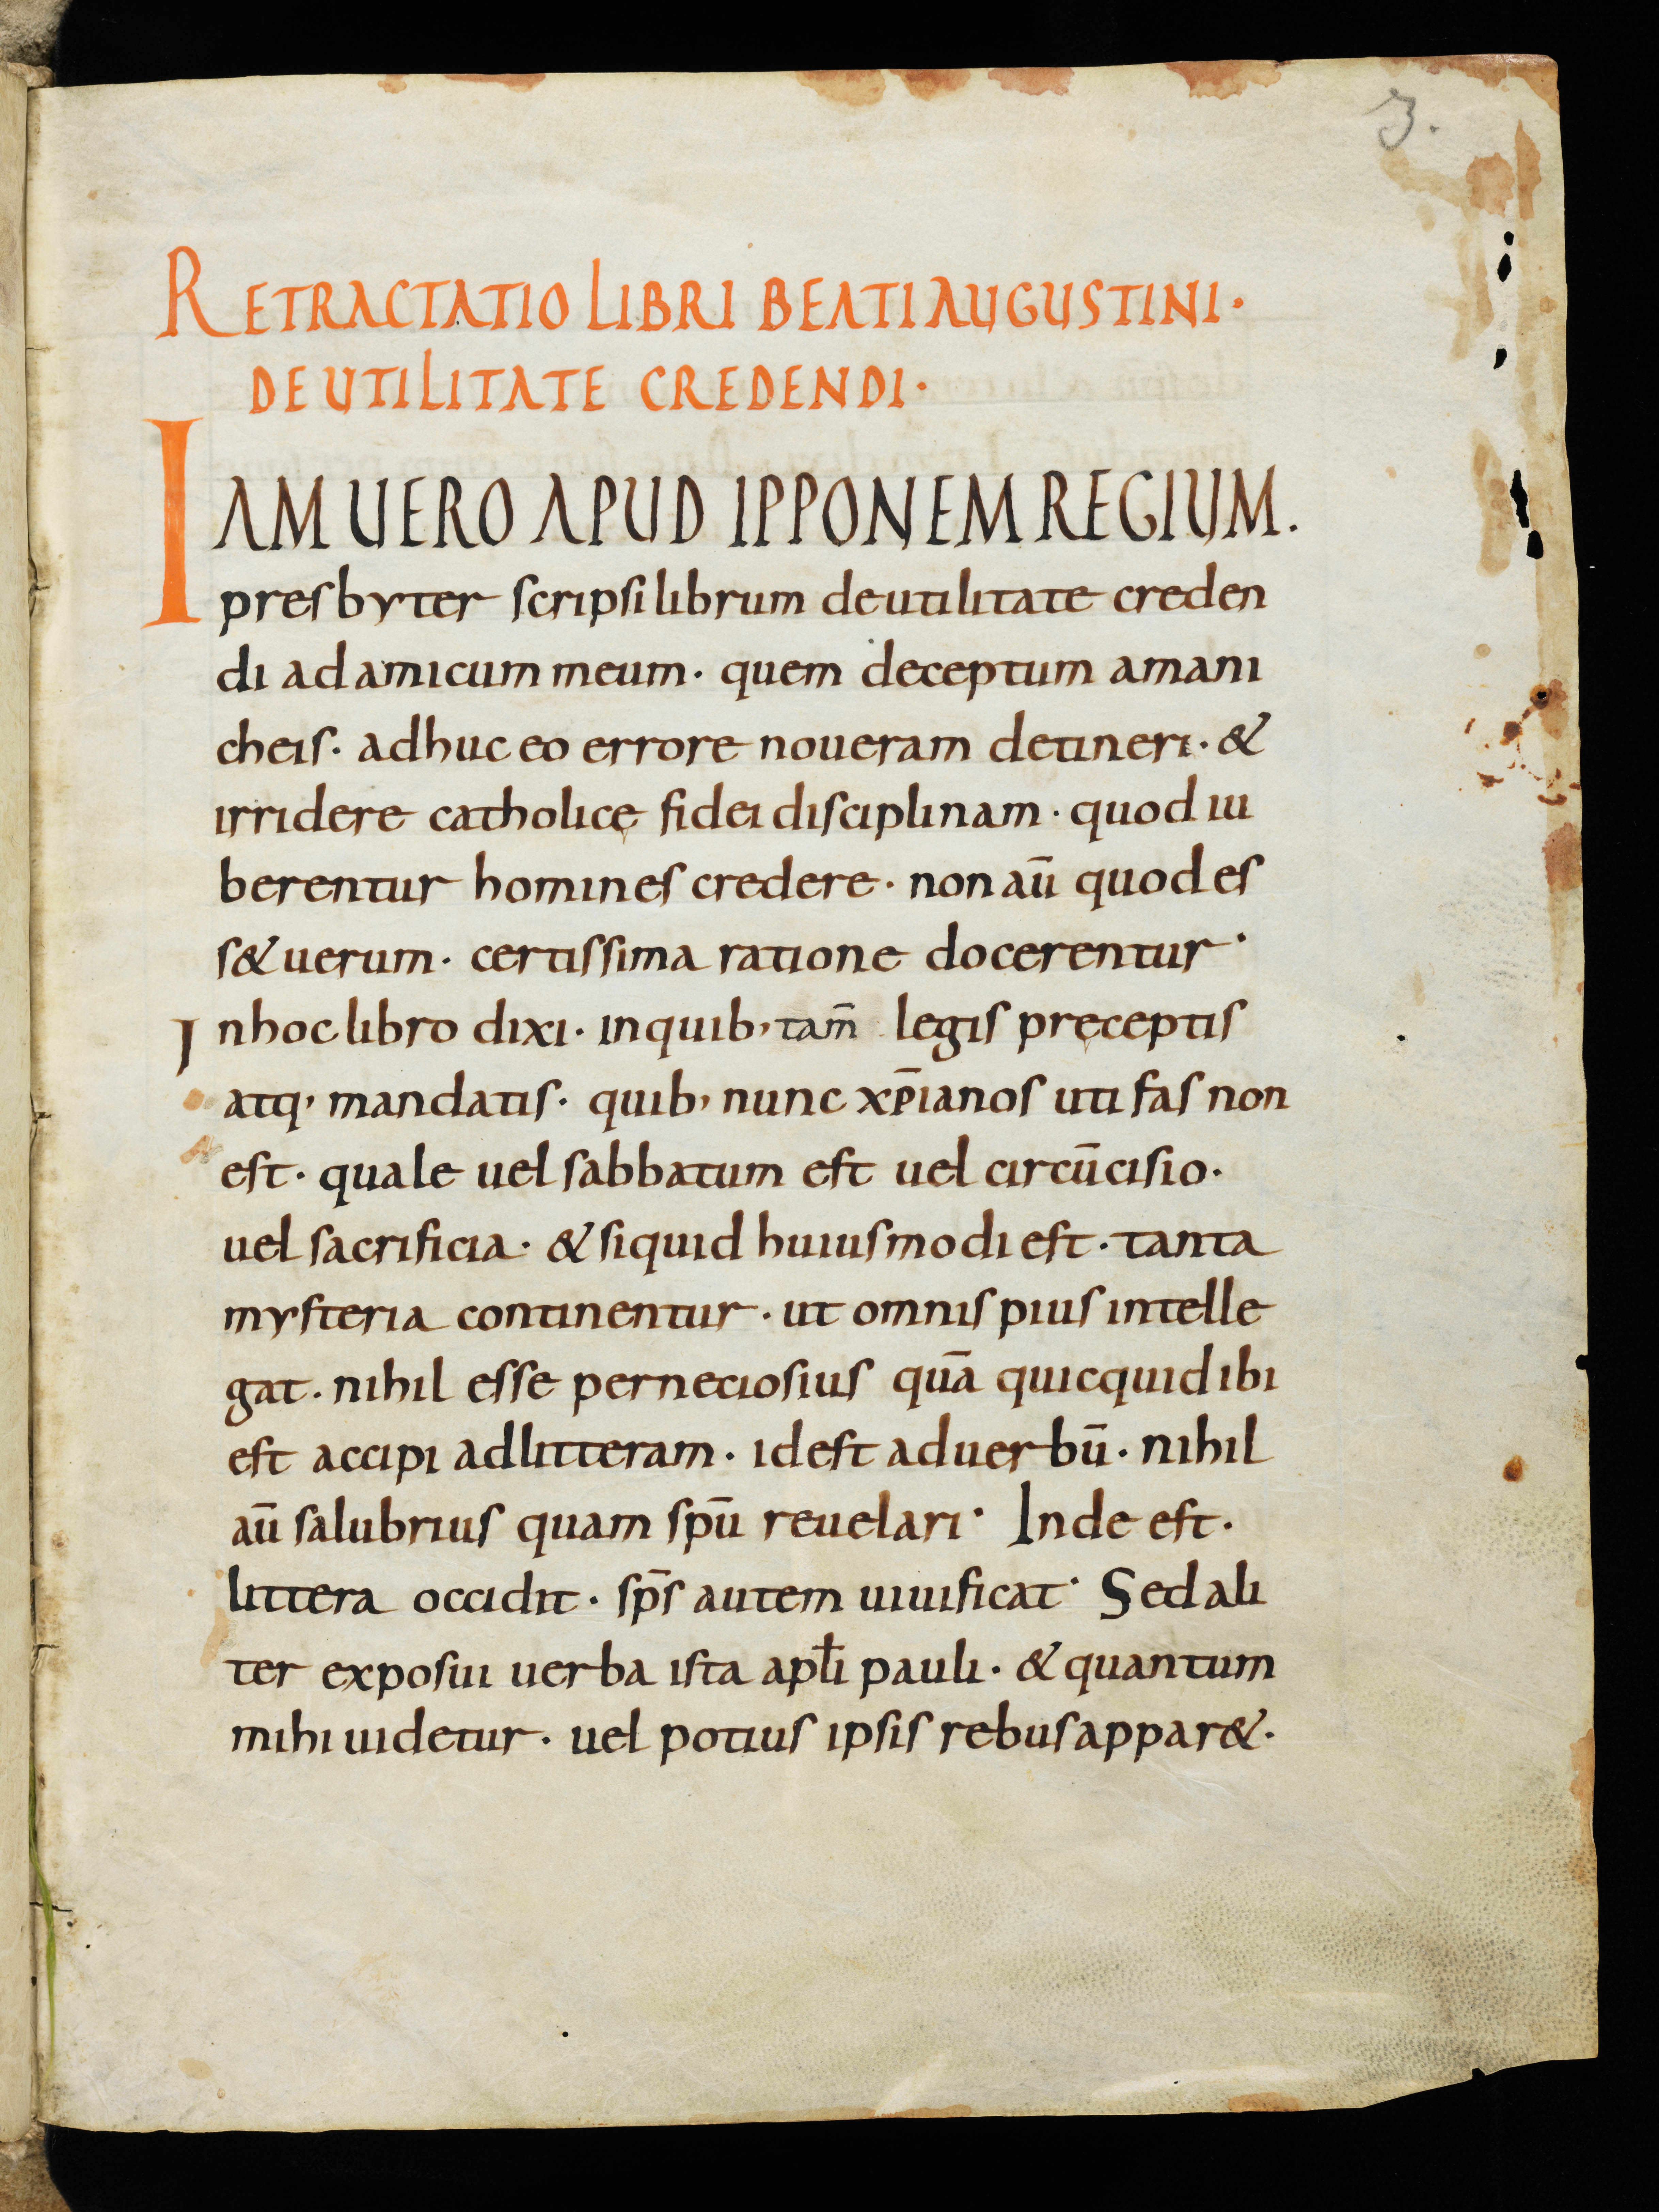 3.
RETRACTATIO LIBRI BEATI AUGUSTINI·
DE UTILITATE CREDENDI·
IAM UERO APUD IPPONEM REGIUM.
presbyter scripsi librum de utilitate creden
di ad amicum meum· quem deceptum amani
cheis· adhuc eo errore noueram detineri· &
irridere catholicę fidei disciplinam· quod iu
berentur homines credere· non aū quod es
s& uerum· certissima ratione docerentur·
Inhoc libro dixi· in quib, tam̄ legis pręceptis
atq, mandatis· quib, nunc xp̄ianos uti fas non
est· quale uel sabbatum est uel circūcisio·
uel sacrificia· & siquid huiusmodi est· tanta
mysteria continentur· ut omnis pius intelle
gat· nihil esse perneciosius quā quicquid ibi
est accipi ad litteram· id est ad uerbū· nihil
aū salubrius quam spū reuelari· Inde est·
littera occidit· sp̄s autem uiuificat· Sed ali
ter exposui uerba ista apłi pauli· & quantum
mihi uidetur· uel potius ipsis rebus appar&·